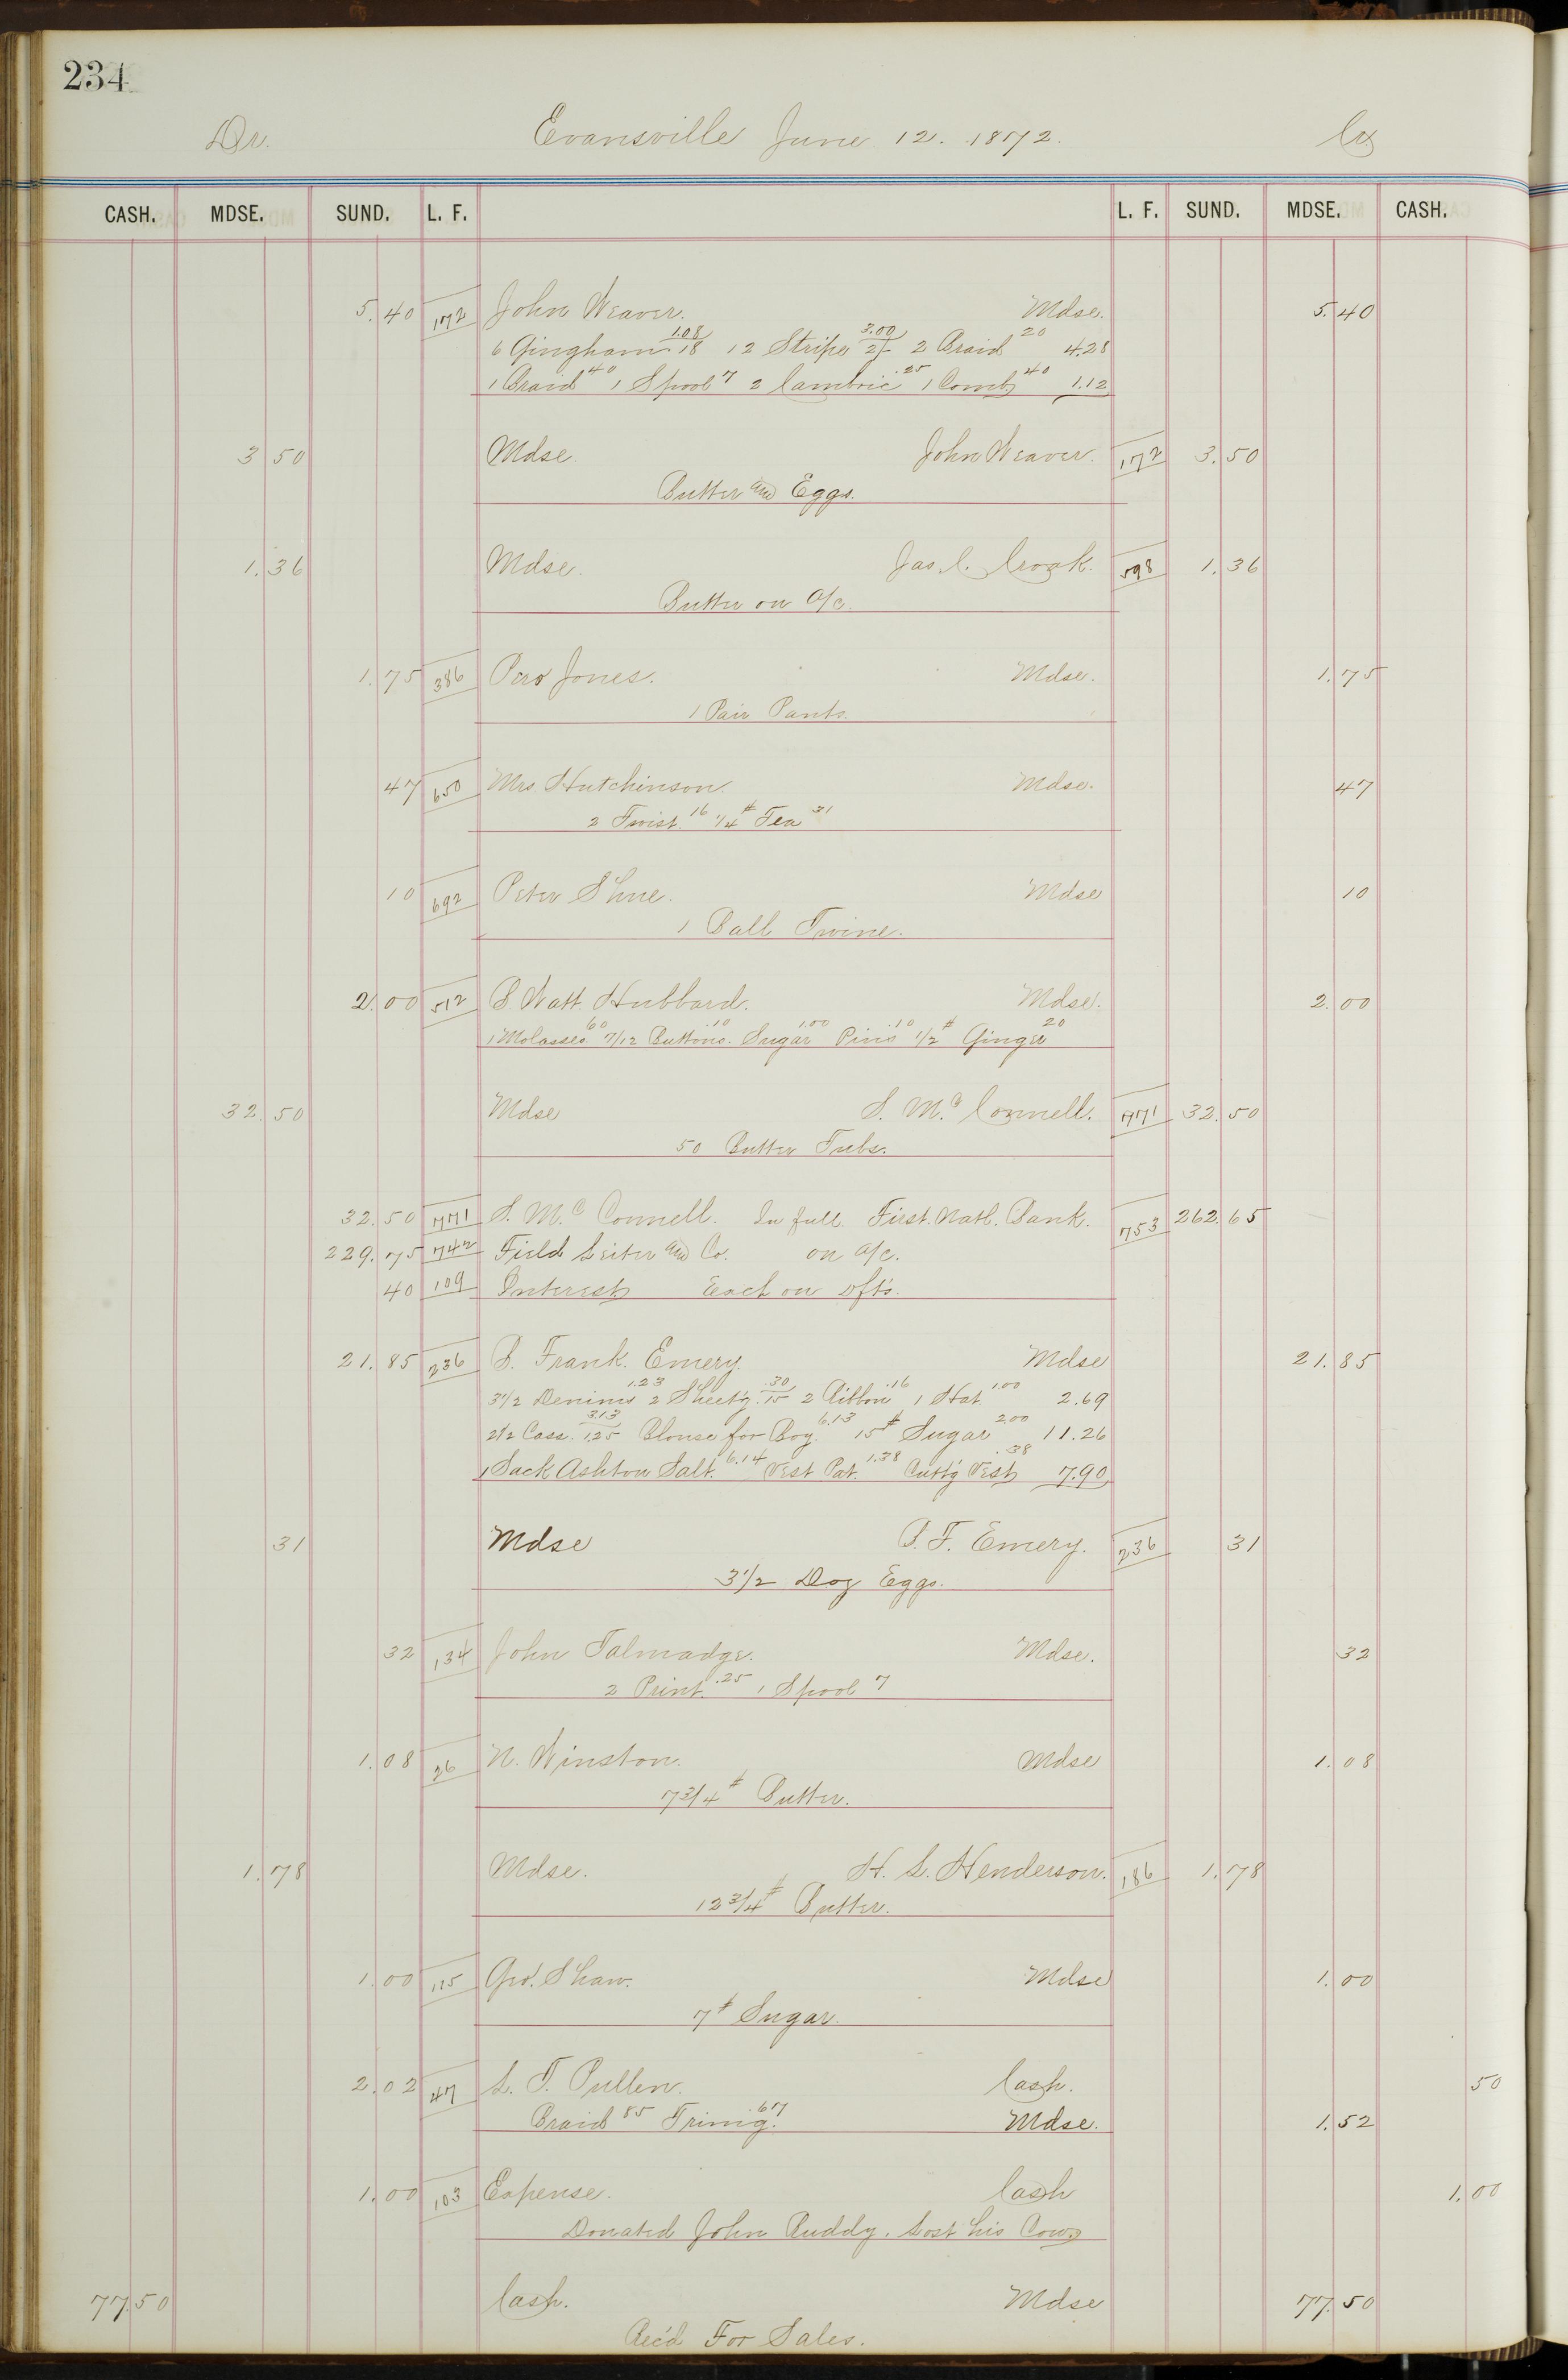 234
Dr. Evansville June 12. 1872. Cr
CASH. MDSE. SUND. L. F. L. F. SUND. MDSE. CASH.
5.40 172 John Weaver. Mdse. 5.40
6 Gingham 1.08 18 12 Stripe 3.00 2/- 2 Braid 20 4.28
1 Braid 40 1 Spool 7 2 Cambric .25 1 Comb 40 1.12
3 50 Mdse. John Weaver. 172 3.50
Butter and Eggs.
1.36 Mdse. Jas. C. Croak. 598 1.36
Butter on a/c.
1.75 386 Jones. Mdse. 1.75
1 Pair Pants.
47 650 Mrs. Hutchinson. Mdse. 47
2 Twist. 16 1/4 # Tea 31
10 692 Peter Shue. Mdse 10
1 Ball Twine.
2.00 512 B. Watt. Hubbard. Mdse. 2.00
1 Molasses 60 7/12 Buttons. .10 Sugar 1.00 Pins .10 1/2 # Ginger 20
32.50 Mdse S. Mc Connell. 771 32.50
50 Butter Tubs.
32.50 771 S. Mc Connell. In full First. Natl. Bank. 753 262.65
229.75 742 Field Leiter and Co. on a/c.
40 109 Interest Exch on Dft's.
21.85 236 B. Frank. Emery. Mdse 21.85
3 1/2 Denims 1.23 2 Sheet'g .30 15 2 Ribbon .16 1 Hat 1.00 2.69
2 1/2 Cass. 3.13 1.25 Blouse for Boy. 6.13 15 # Sugar 2.00 11.26
1 Sack Ashton Salt. 6.14 Vest Pat. 1.38 Cutt'g Vest .38 7.90
31 Mdse B. F. Emery. 236 31
3 1/2 Doz Eggs.
32 134 John Talmadge. Mdse. 32
2 Print. .25 1 Spool 7
1.08 26 N. Winston. Mdse 1.08
7 3/4 # Butter.
1.78 Mdse. H. L. Henderson. 186 1.78
12 3/4 # Butter.
1.00 115 Geo. Shaw. Mdse 1.00
7 # Sugar.
2.02 47 L. T. Pullen. Cash. 50
Braid 85 Trim'g. .67 Mdse. 1.52
1.00 103 Expense. Cash 1.00
Donated John Ruddy. Lost his Cow
77.50 Cash. Mdse 77.50
Rec'd For Sales.